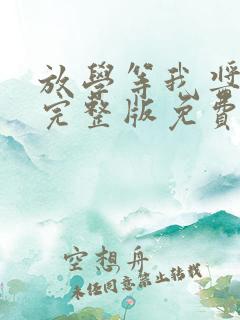 放學等我獎
完整版免費
空想舟
未经同意禁止转载